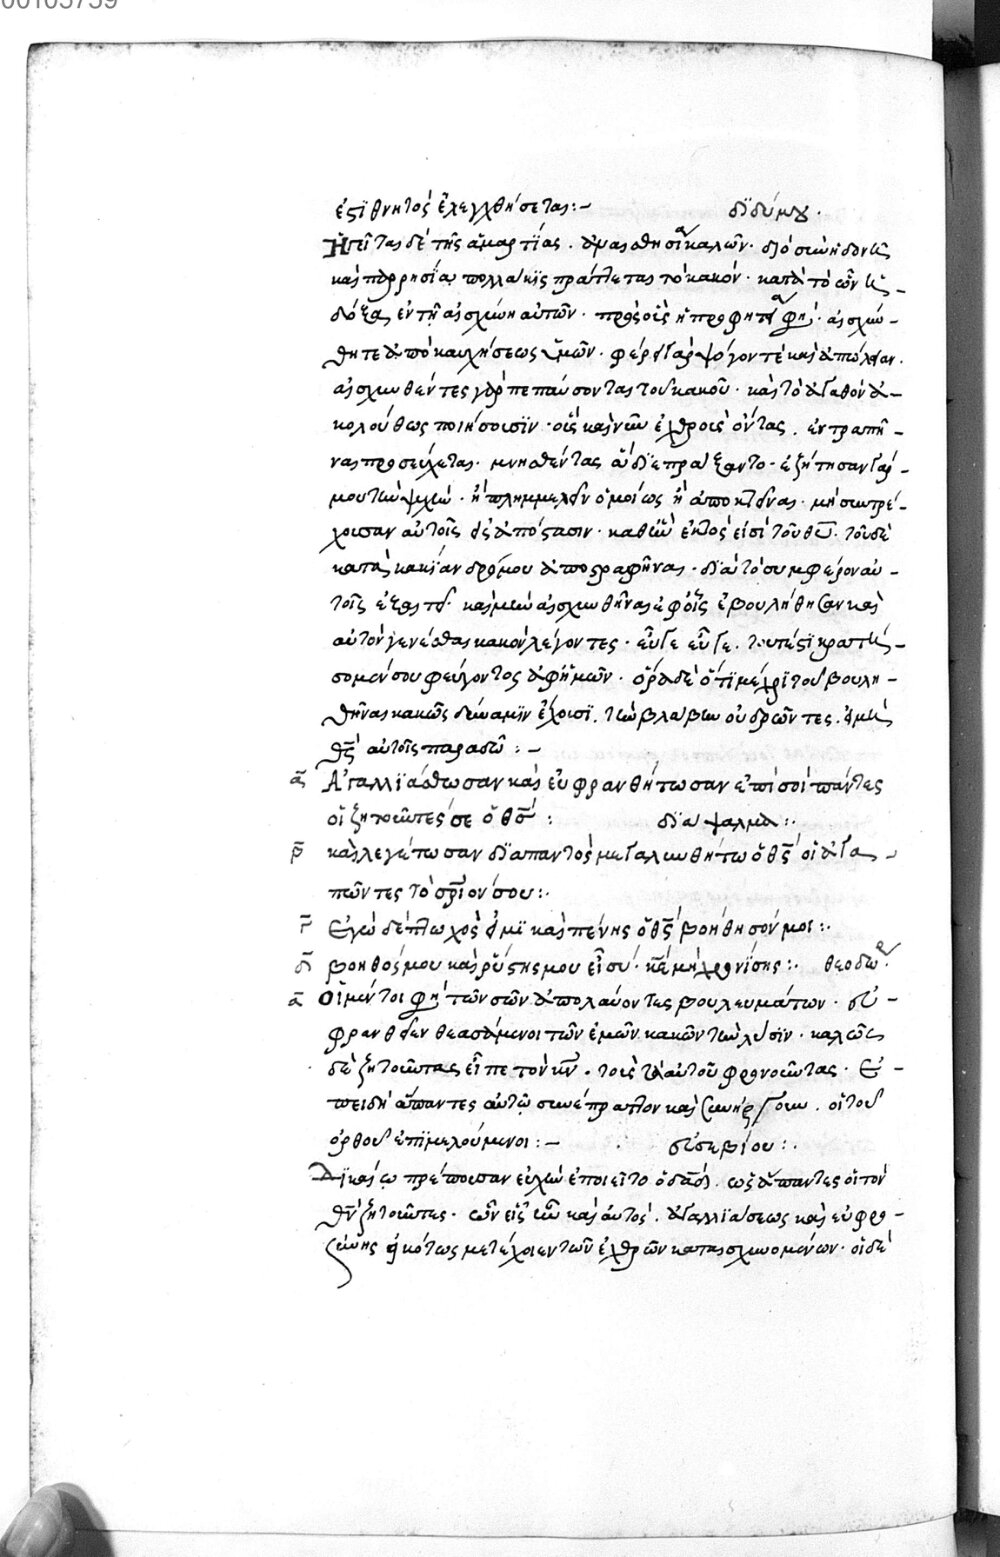 00105759
ἐστὶ θνητὸς ἐλεγχθήσεται:~ διδύμου.
καὶ παρρησίᾳ πολλάκις πράττεται τὸ κακόν.
δόξα ἐν τῇ αἰσχύνῃ αὐτῶν. πρὸς οὓς ἡ προφητεία φησί. αἰσχύν-
θητε ἀπὸ καυχήσεως ὑμῶν. φέρει γὰρ ψόγον τὲ καὶ ἀπώλειαν.
αἰσχυνθέντες γὰρ πεπαύσονται τοῦ κακοῦ. καὶ τὸ ἀγαθὸν ἀ-
κολούθως ποιήσουσιν. οἷς καὶ νῦν ἐχθροῖς οὖσι. ἐντραπῆ-
ναι προσεύχεται. μνησθέντας ὧν διεπράξαντο. ἐζήτησαν γάρ
μου τὴν ψυχήν. ἢ πλημμελεῖν ὁμοίως ἢ ἀποκτεῖναι. μὴ συντρέ-
χουσαν αὐτοῖς εἰς ἀπόστασιν. καθ' ἣν ἐκτός εἰσι τοῦ θυ. τοῦ δὲ
κατὰ κακίαν δρόμου ἀποστραφῆναι. διὰ τὸ συμφέρον αὐ-
τοῖς εὔχεται. καὶ μὴν αἰσχυνθῆναι ἐφ' οἷς ἐβουλήθησαν καὶ
αὐτὸν γενέσθαι κακὸν λέγοντες. εὖγε εὖγε.
σομέν σου φεύγοντος ἀφ' ἡμῶν. ὅρα δὲ ὅτι μέχρι τοῦ βουλη-
θῆναι κακῶς δύναμιν ἔχουσι. τὴν βλάβην οὐ δρῶντες. εἰ μὴ
θς αὐτοῖς παραδῷ:~
α Ἀγαλλιάσθωσαν καὶ εὐφρανθήτωσαν ἐπὶ σοὶ πάντες
οἱ ζητοῦντές σε ὁ θς: διάψαλμα:.
β καὶ λεγέτωσαν διαπαντὸς μεγαλυνθήτω ὁ θς οἱ ἀγα-
πῶντες τὸ σριόν σου:.
γ Ἐγὼ δὲ πτωχός εἰμι καὶ πένης ὁ θς βοήθησόν μοι:.
δ βοηθός μου καὶ ῥύστης μου εἶ σύ. κε μὴ χρονίσῃς:. θεοδωρ.
α Οἱ μέντοι φησὶ τῶν σῶν ἀπολαύοντες βουλευμάτων. εὐ-
φρανθεῖεν θεασάμενοι τῶν ἐμῶν κακῶν τὴν λύσιν. καλῶς
δὲ ζητοῦντας εἶπε τὸν κν. τοὺς τὰ αὐτοῦ φρονοῦντας. Ἐ-
πειδὴ ἅπαντες αὐτῷ συνέπραττον καὶ συνήργουν. οἱ τοῦ
ὀρθοῦ ἐπιμελούμενοι:~ εὐσεβίου:.
Δικαίῳ πρέπουσαν εὐχὴν ἐποιεῖτο ὁ δαδ. ὡς ἅπαντες οἱ τὸν
θν ζητοῦντες. ὧν εἷς ἦν καὶ αὐτός. ἀγαλλιάσεως καὶ εὐφρο-
σύνης εἰκότως μετέχοιεν τῶν ἐχθρῶν καταισχυνομένων. οἱ δὲ